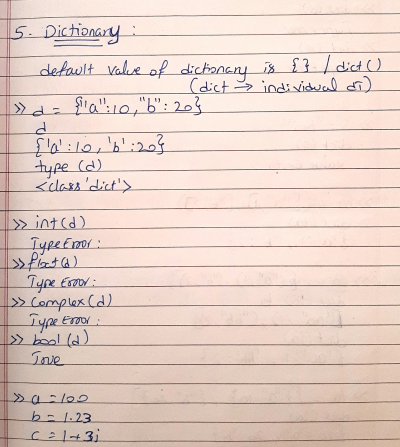 5. Dictionary :
default value of dictionary is {} / dict()
(dict → individual DT)
>> d = {"a":10, "b": 20}
d
{'a':10, 'b':20}
type (d)
<class 'dict'>
>> int(d)
TypeError:
>> float(d)
Type Error:
>> complex(d)
TypeError:
>> bool (d)
True
>> a = 100
b = 1.23
c = 1+3j